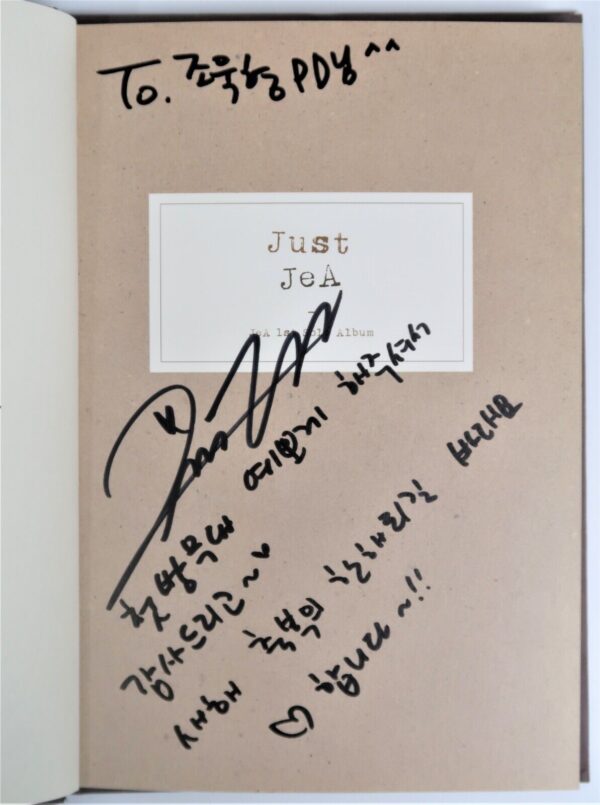 To. 조욱형 PD님 ^^
Just
JeA
JeA 1st Solo Album
첫방무대 예쁘게 해주셔서
감사드리고~♥
새해 축복의 한해되길 바래요
♡ 합니다~!!